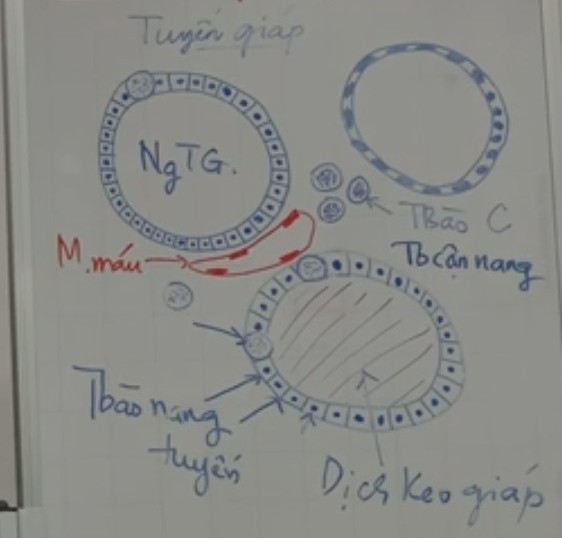 Tuyến giáp
NgTG.
TBào C
M.máu
Tb cận nang
Tbào nang
tuyến
Dịch keo giáp